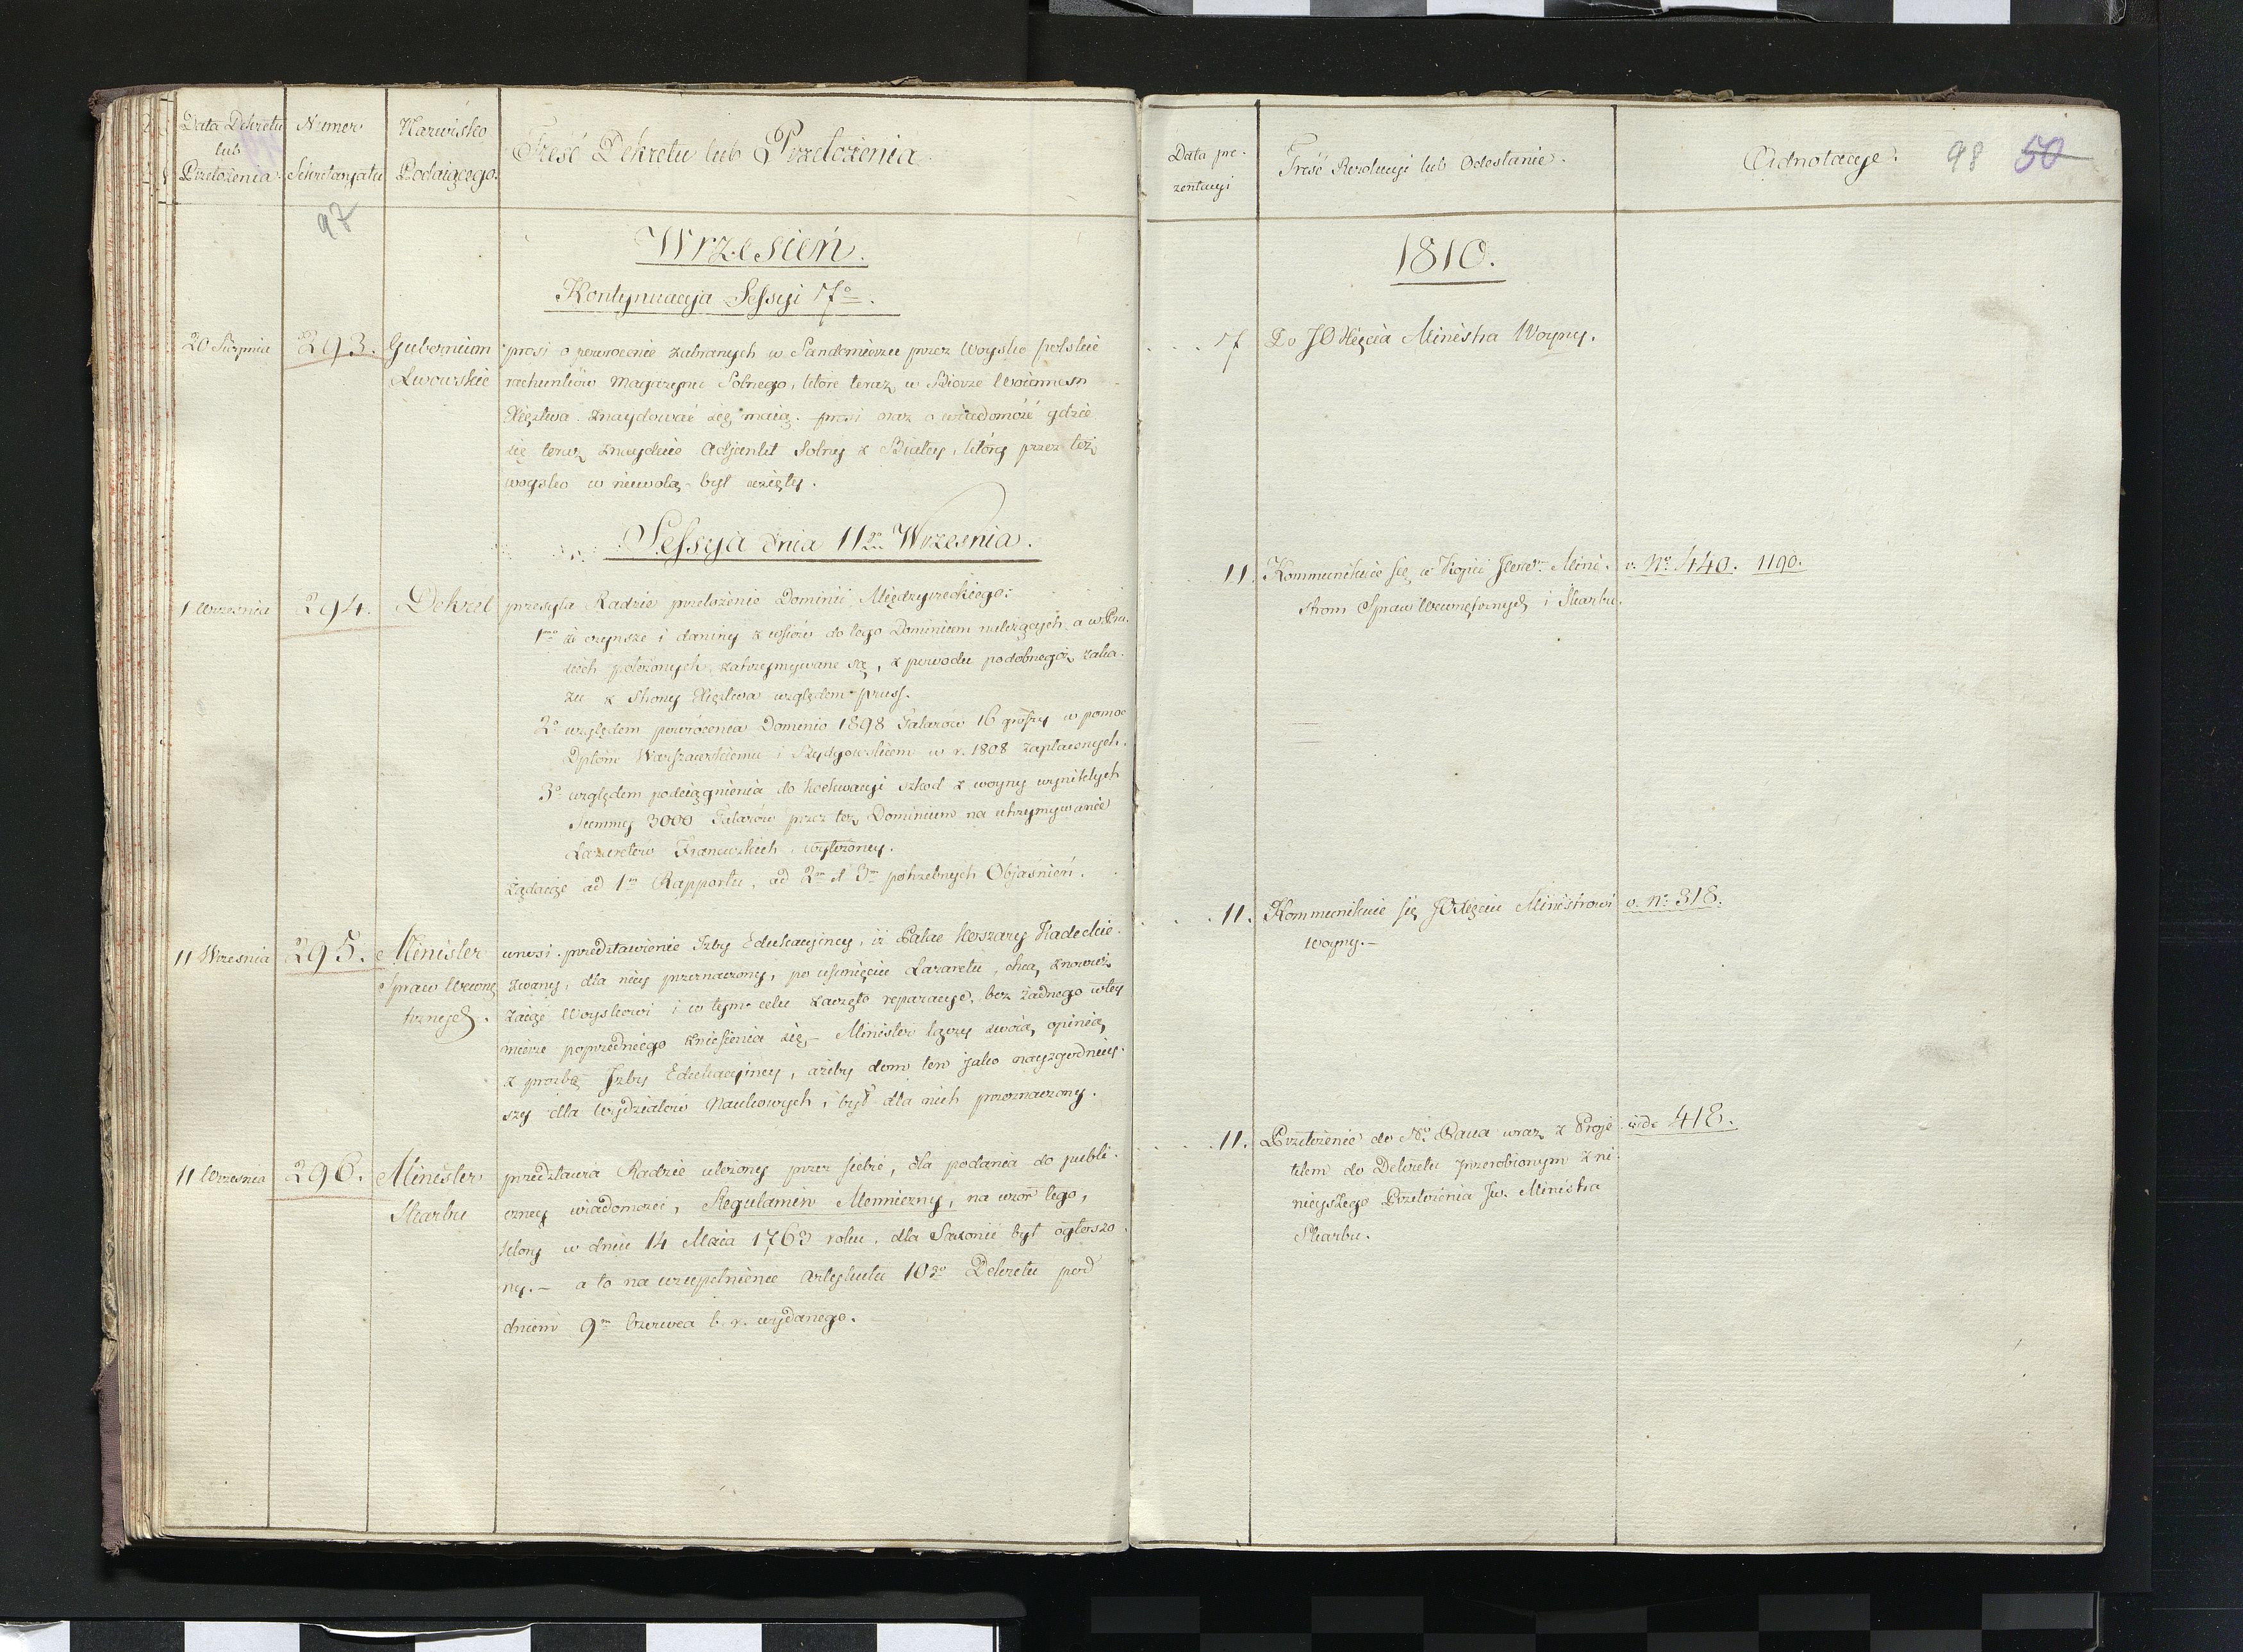 Data Dekretu
lub
Przełożenia.
Numer
Sekretaryatu
Nazwisko
Podaiącego.
Treść Dekretu lub Przełożenia
97
Wrzesień.
Kontynuacya Sessyi 7º.
20 Sierpnia
293.
Gubernium
Lwowskie
prosi o powrocenie zabranych w Sandomierzu przez Woysko polskie
rachunków Magazynu Solnego, które teraz w Biorze Woiennem
Xięztwa znaydować się maią. prosi oraz o wiadomość gdzie
się teraz znayduie Adjunkt Solny z Białey, który przez toż
woysko w niewolą był wzięty.
Sessyja dnia 11go Września.
1 Września
294.
Dekret
przesyła Radzie przełożenie Dominii Międzyrzeckiego:
1mo że czynsze i daniny z wsiów do tego Dominium należących a w Pru-
siech położonych zatrzymywane są, z powodu podobnegoż zaka-
zu z strony Xięztwa względem pruss.
2º względem powrócenia Dominio 1898 Talarów 16 groszy w pomoc
Dptów Warszawskiemu i Bydgowskiem w r. 1808 zapłaconych.
3º względem podciągnienia do koekwacyi szkod z woyny wynikłych
Summy 3000 Talarów przez toż Dominium na utrzymywanie
Lazaretów Francuzkich wyłożoney.
Żądaiąc ad 1m Rapportu, ad 2m et 3m potrzebnych Objaśnień.
11 Wrzesnia
295.
Minister
Spraw Wewnę
trznych.
wnosi przedstawienie Izby Edukacyiney, iż Pałac Koszary Kadeckie
zwany, dla niey przeznaczony, po usunięciu Lazaretu, chcą znowuż
zaiąć Woyskowi i w tym celu zaczęto reparacye, bez żadnego w tey
mierze poprzedniego zniesienia się - Minister łączy swoią opinią
z prozbą Izby Edukacyiney, ażeby dom ten jako nayzgodniey-
szy dla Wydziałów Naukowych, był dla nich przeznaczony.
11 Wrzesnia
296.
Minister
Skarbu
przedstawia Radzie ułożony przez siebie, dla podania do publi-
czney wiadomości, Regulamin Menniczny, na wzór tego,
który w dniu 14 Maia 1763 roku, dla Saxonii był ogłoszo
ny. - a to na uzupełnienie Artykułu 10go Dekretu pod
dniem 9m Czerwca b. r. wydanego.
Data pre-
zentacyi
Treść Rezolucyi lub Odesłanie.
Adnotacye.
98 50
1810.
7
Do JO Xięcia Ministra Woyny.
11.
Kommunikuie się w Kopii Mini-
strom Spraw Wewnętrznych i Skarbu.
v. Nº 440. 1190.
11.
Kommunikuie się JOXięciu Ministrowi
woyny.-
v. Nº 318.
11.
Przełożenie do Nº Pana wraz z Proje
ktem do Dekretu przerobionym z ni-
nieyszego Przełożenia Jw. Ministra
Skarbu.
vide 418.